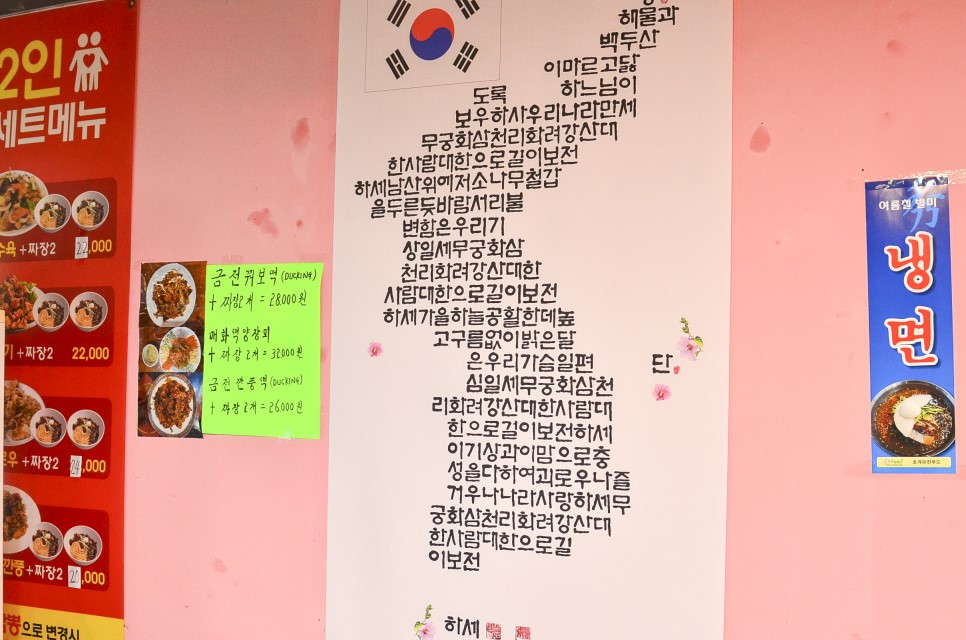 2인
세트메뉴
수육 +짜장2 22,000
기 +짜장2 22,000
로우 +짜장2 24,000
깐풍 +짜장2 20,000
짬뽕으로 변경시
금전꿔보역 (DUCKING)
+ 짜장2개 = 28,000원
매화역양장피
+ 짜장2개 = 32,000원
금전깐풍역 (DUCKING)
+ 짜장2개 = 26,000원
해물과
백두산
이마르고닳
하느님이
도록
보우하사우리나라만세
무궁화삼천리화려강산대
한사람대한으로길이보전
하세남산위에저소나무철갑
을두른듯바람서리불
변함은우리기
상일세무궁화삼
천리화려강산대한
사람대한으로길이보전
하세가을하늘공활한데높
고구름없이밝은달
은우리가슴일편
단
심일세무궁화삼천
리화려강산대한사람대
한으로길이보전하세
이기상과이맘으로충
성을다하여괴로우나즐
거우나나라사랑하세무
궁화삼천리화려강산대
한사람대한으로길
이보전
하세
여름철 별미
냉면